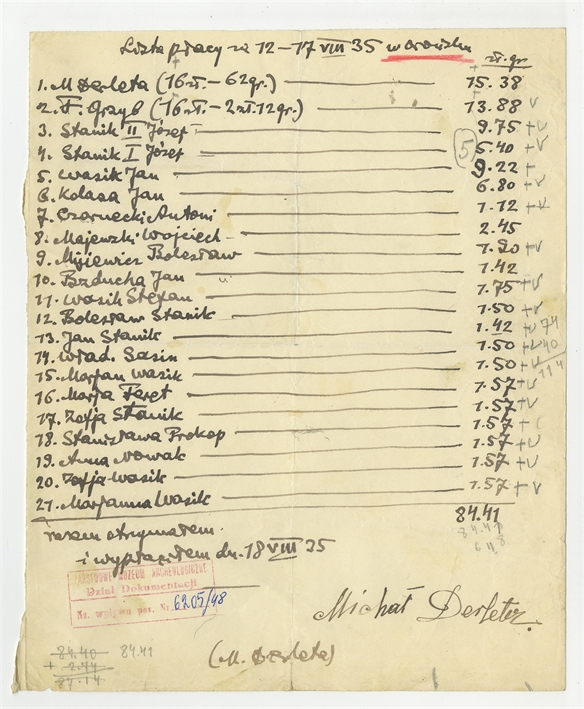 Lista płacy za 12–17 VIII 35 w Orońsku
zł. gr
1. M Derleta (16 zł. – 62 gr.) 15.38
2. F. Grzyb (16 zł. – 2 zł. 12 gr.) 13.88 v
3. Stanik II Józef 9.75 + v
4. Stanik I Józef 5.40 + v
5. Wasik Jan 9.22 +
6. Kolasa Jan 6.80 + v
7. Czarnecki Antoni 1.12 + v
8. Majewski Wojciech 2.45
9. Bolesław 1.20 + v
10. Jan 1.42
11. Wasik Stefan 1.75 + v
12. Bolesław Stanik 1.50 + v
13. Jan Stanik 1.42 + v 74
14. Wład. Sasin 1.50 + v 40
15. Marjan Wasik 1.50 + v 114
16. Marja Feret 1.57 + v
17. Zofja Stanik 1.57 + v
18. Stanisława Prokop 1.57 +
19. Anna Nowak 1.57 + v
20. Zofja Wasik 1.57 + v
21. Marjanna Wasik 1.57 + v
84.41
84.41
razem otrzymałem
i wypłaciłem dn. 18 VIII 35
PAŃSTWOWE MUZEUM ARCHEOLOGICZNE
Dział Dokumentacji
Nr. wpływu poz. Nr. 6205/48
Michał Derleta.
(M. Derleta)
84.40 84.41
+ 2.74
87.14